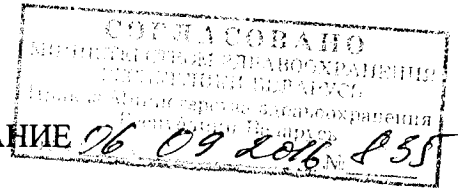 СОГЛАСОВАНО
МИНИСТЕРСТВОМ ЗДРАВООХРАНЕНИЯ
РЕСПУБЛИКИ БЕЛАРУСЬ
Приказ Министерства здравоохранения
Республики Беларусь
АНИЕ 06 09 2016 № 835